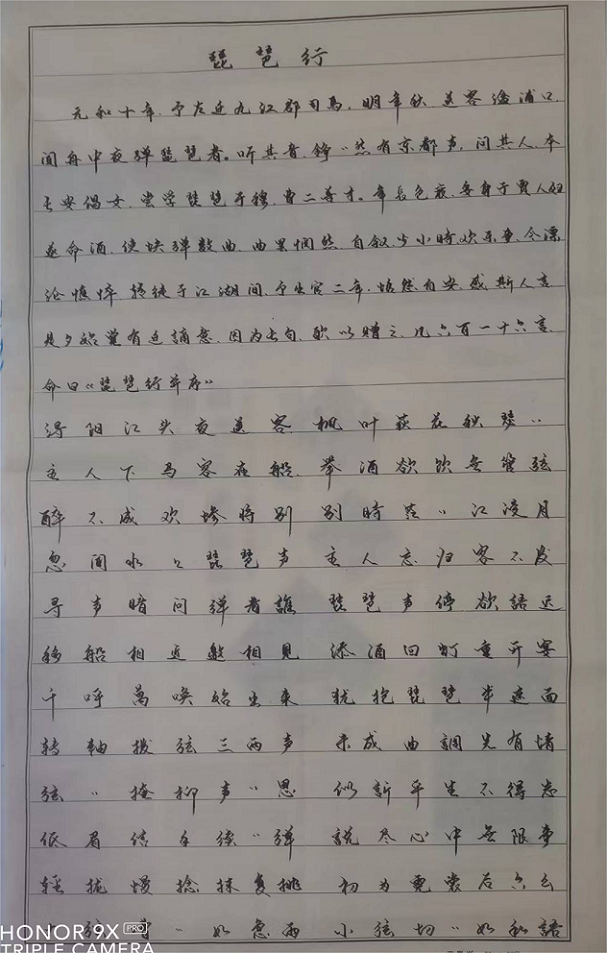 琵琶行
元和十年,予左迁九江郡司马。明年秋,送客湓浦口,
闻舟中夜弹琵琶者。听其音,铮〃然有京都声,问其人,本
长安倡女,尝学琵琶于穆、曹二善才。年长色衰,委身于贾人妇
遂命酒,使快弹数曲,曲罢悯然,自叙少小时欢乐事,今漂
沦憔悴,转徙于江湖间。予出官二年,恬然自安,感斯人言
是夕始觉有迁谪意,因为长句,歌以赠之,凡六百一十六言,
命曰《琵琶行并序》
浔阳江头夜送客 枫叶荻花秋瑟〃
主人下马客在船 举酒欲饮无管弦
醉不成欢惨将别 别时茫〃江浸月
忽闻水上琵琶声 主人忘归客不发
寻声暗问弹者誰 琵琶声停欲語迟
移船相近邀相見 添酒回灯重开宴
千呼萬唤始出来 犹抱琵琶半遮面
转軸拨弦三两声 未成曲調先有情
弦〃掩抑声〃思 似訴平生不得志
低眉信手续〃弹 説尽心中無限事
轻拢慢捻抹复挑 初为霓裳后六幺
弦〃如急雨 小弦切〃如私語
HONOR 9X PRO
TRIPLE CAMERA